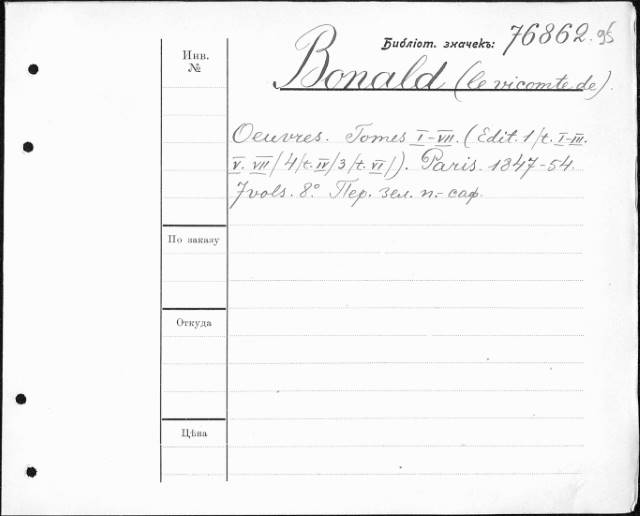 Инв.
№
Библіот. значекъ: 76862.
Bonald (le vicomte de).
Oeuvres. Tomes I-VII. (Edit. 1/t. I-III.
V. VII/ 4/t. IV/3/t. VI/). Paris. 1847-54.
7 vols. 8° Пер. зел. п.-саф.
По заказу
Откуда
Цѣна